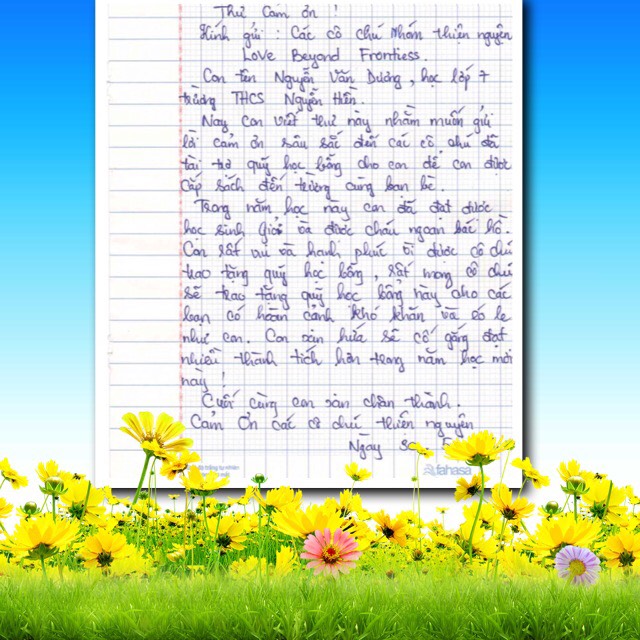 Thư Cảm ơn !
Kính gửi : Các cô chú Nhóm thiện nguyện
Love Beyond Frontiess
Con tên Nguyễn Văn Dương, học lớp 7
trường THCS Nguyễn Hiền.
Nay con viết thư này nhằm muốn gửi
lời cảm ơn sâu sắc đến các cô chú đã
tài trợ quỹ học bổng cho con để con được
cắp sách đến trường cùng bạn bè.
Trong năm học này con đã đạt được
học sinh giỏi và được cháu ngoan bác hồ.
Con rất vui và hạnh phúc vì được cô chú
trao tặng quỹ học bổng, rất mong cô chú
sẽ trao tặng quỹ học bổng này cho các
bạn có hoàn cảnh khó khăn và
như con. Con xin hứa sẽ cố gắng đạt
nhiều thành tích hơn trong năm học mới
này !
Cuối cùng con xin chân thành.
Cảm Ơn các cô chú thiện nguyện
Ngày
fahasa